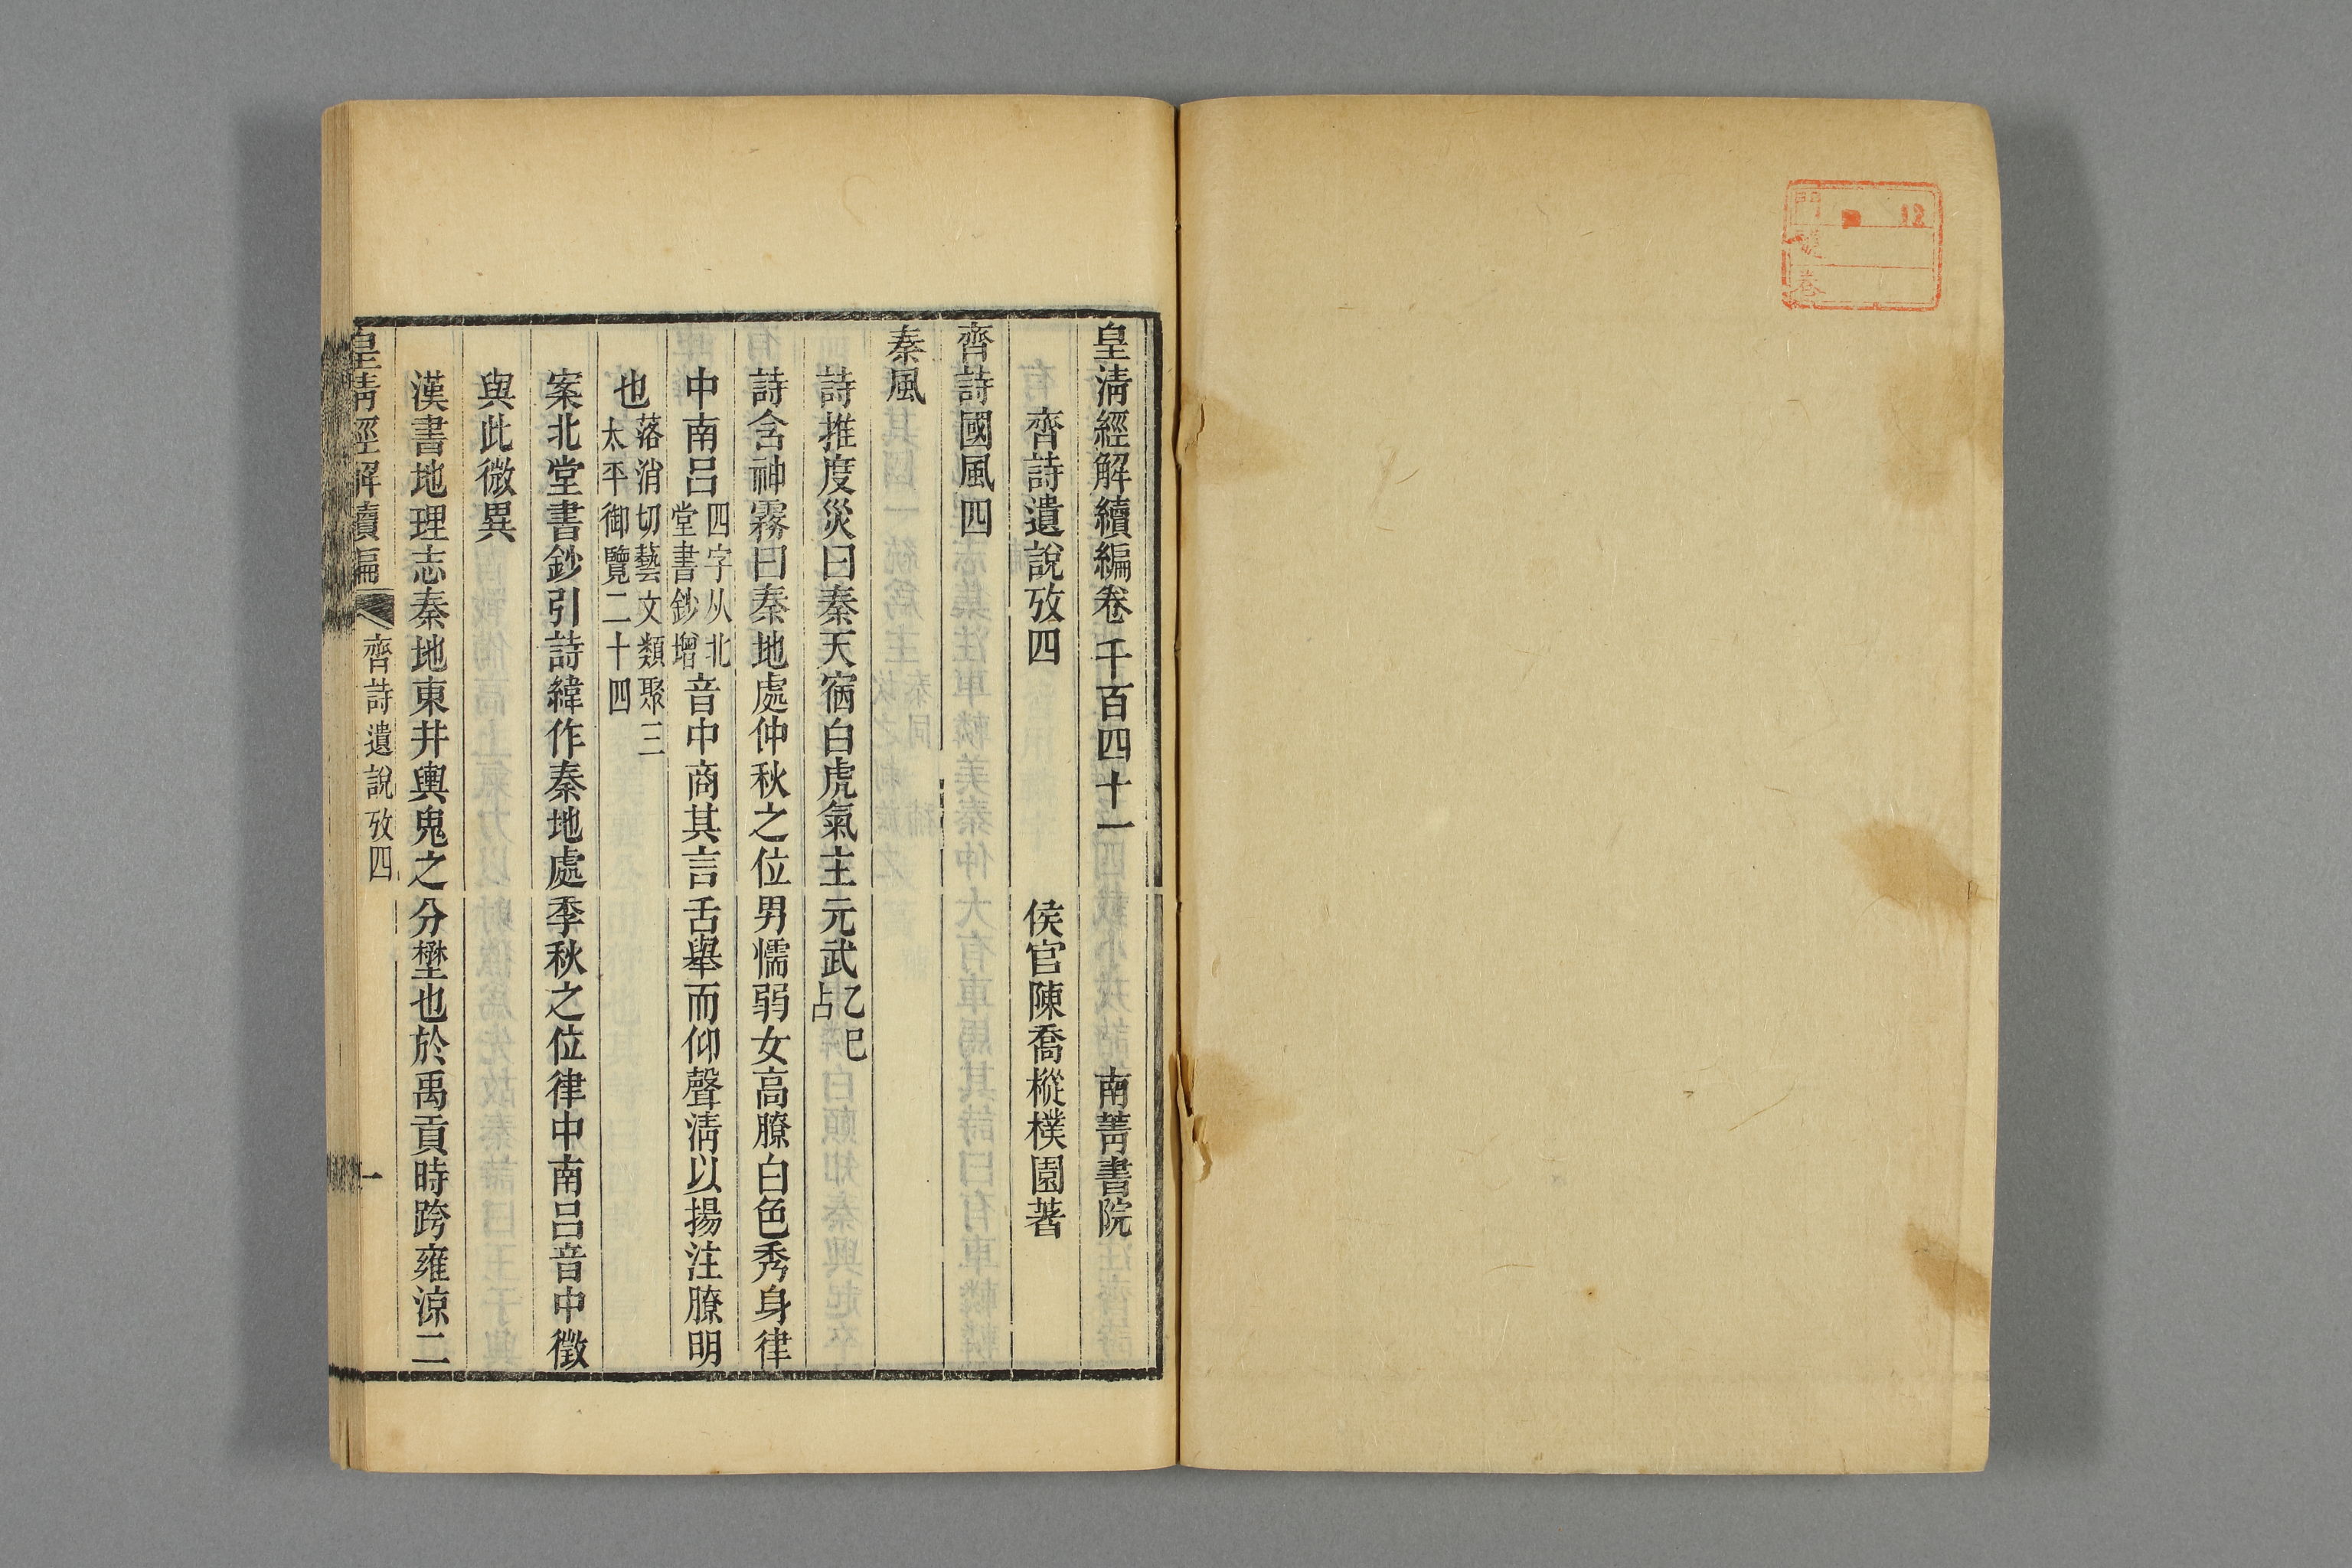 門 12
號
卷
皇清經解續編卷千百四十一 南菁書院
齊詩遺說攷四 侯官陳喬樅樸園著
齊詩國風四
秦風
詩推度災曰秦天宿白虎氣主元武乙巳占
詩含神霧曰秦地處仲秋之位男懦弱女高膫白色秀身律
中南呂四字从北堂書鈔增音中商其言舌舉而仰聲清以揚注膫明
也落消切藝文類聚三太平御覽二十四
案北堂書鈔引詩緯作秦地處季秋之位律中南呂音中徵
與此微異
漢書地理志秦地東井輿鬼之分壄也於禹貢時跨雍涼二
皇清經解續編 齊詩遺說攷四 一